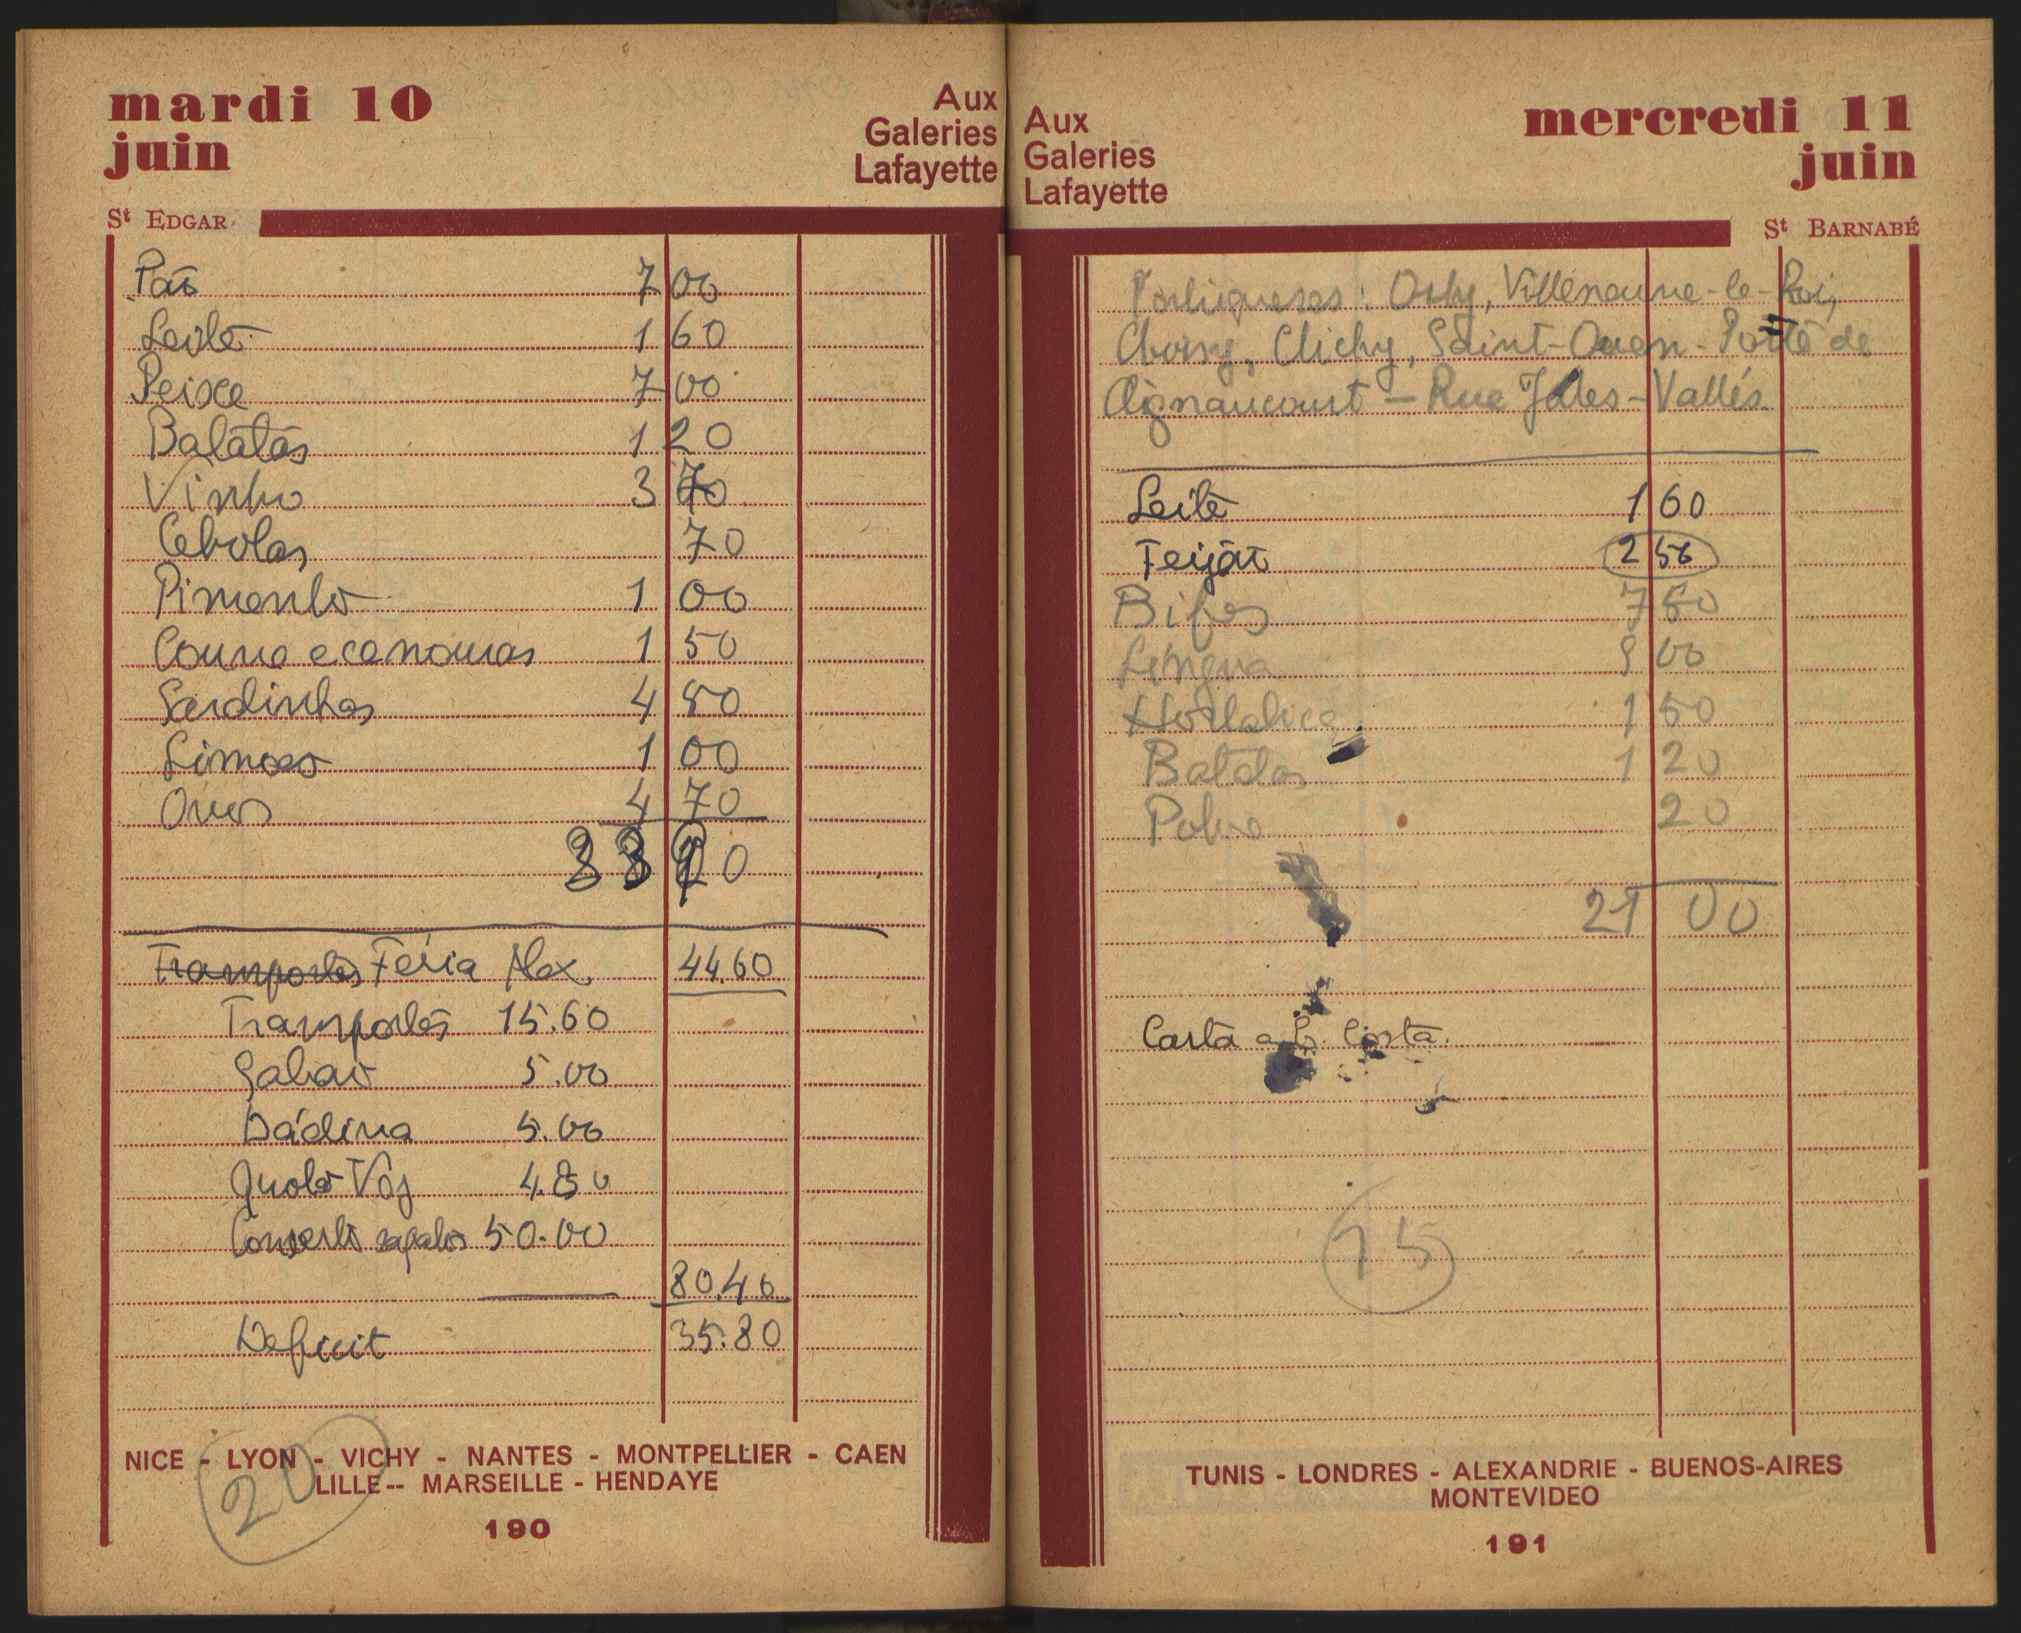 mardi 10
juin
Aux
Galeries
Lafayette
St EDGAR
Pão 7 00
Leite 1 60
Peixe 7 00
Batatas 1 20
Vinho 3 70
Cebolas 70
Pimento 1 00
Couve e cenouras 1 50
Sardinhas 4 80
Limões 1 00
Ovos 4 70
20
Transportes Féria Alex. 44.60
Transportes 15.60
Sabão 5.00
Dádiva 5.00
Quota Voz 4.80
Conserto sapatos 50.00
80.40
Deficit 35.80
20
NICE - LYON - VICHY - NANTES - MONTPELLIER - CAEN
LILLE -- MARSEILLE - HENDAYE
190
Aux
Galeries
Lafayette
mercredi 11
juin
St BARNABÉ
Portugueses: Orly, Villeneuve-le-Roi,
Choisy, Clichy, Saint-Ouen - Porte de
Clignancourt - Rue Jules-Vallés
Leite 1 60
Feijão 2 50
Bifes 7 50
Língua 9 00
Hortaliça 1 50
Batatas 1 20
20
21 00
Carta a L. Costa.
15
TUNIS - LONDRES - ALEXANDRIE - BUENOS-AIRES
MONTEVIDEO
191